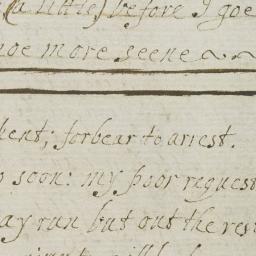 (a little) before I goe
noe more seene
forbear to arrest.
soon: my poor request
run but out the rest